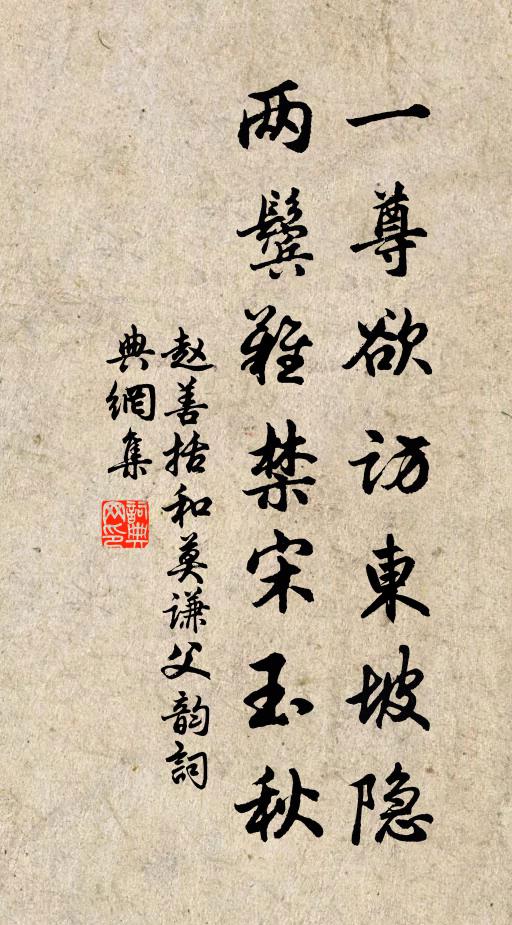 一尊欲访東坡隐
两鬓难禁宋玉秋
赵善括和莫谦父韵詞
典網集
詞典网印